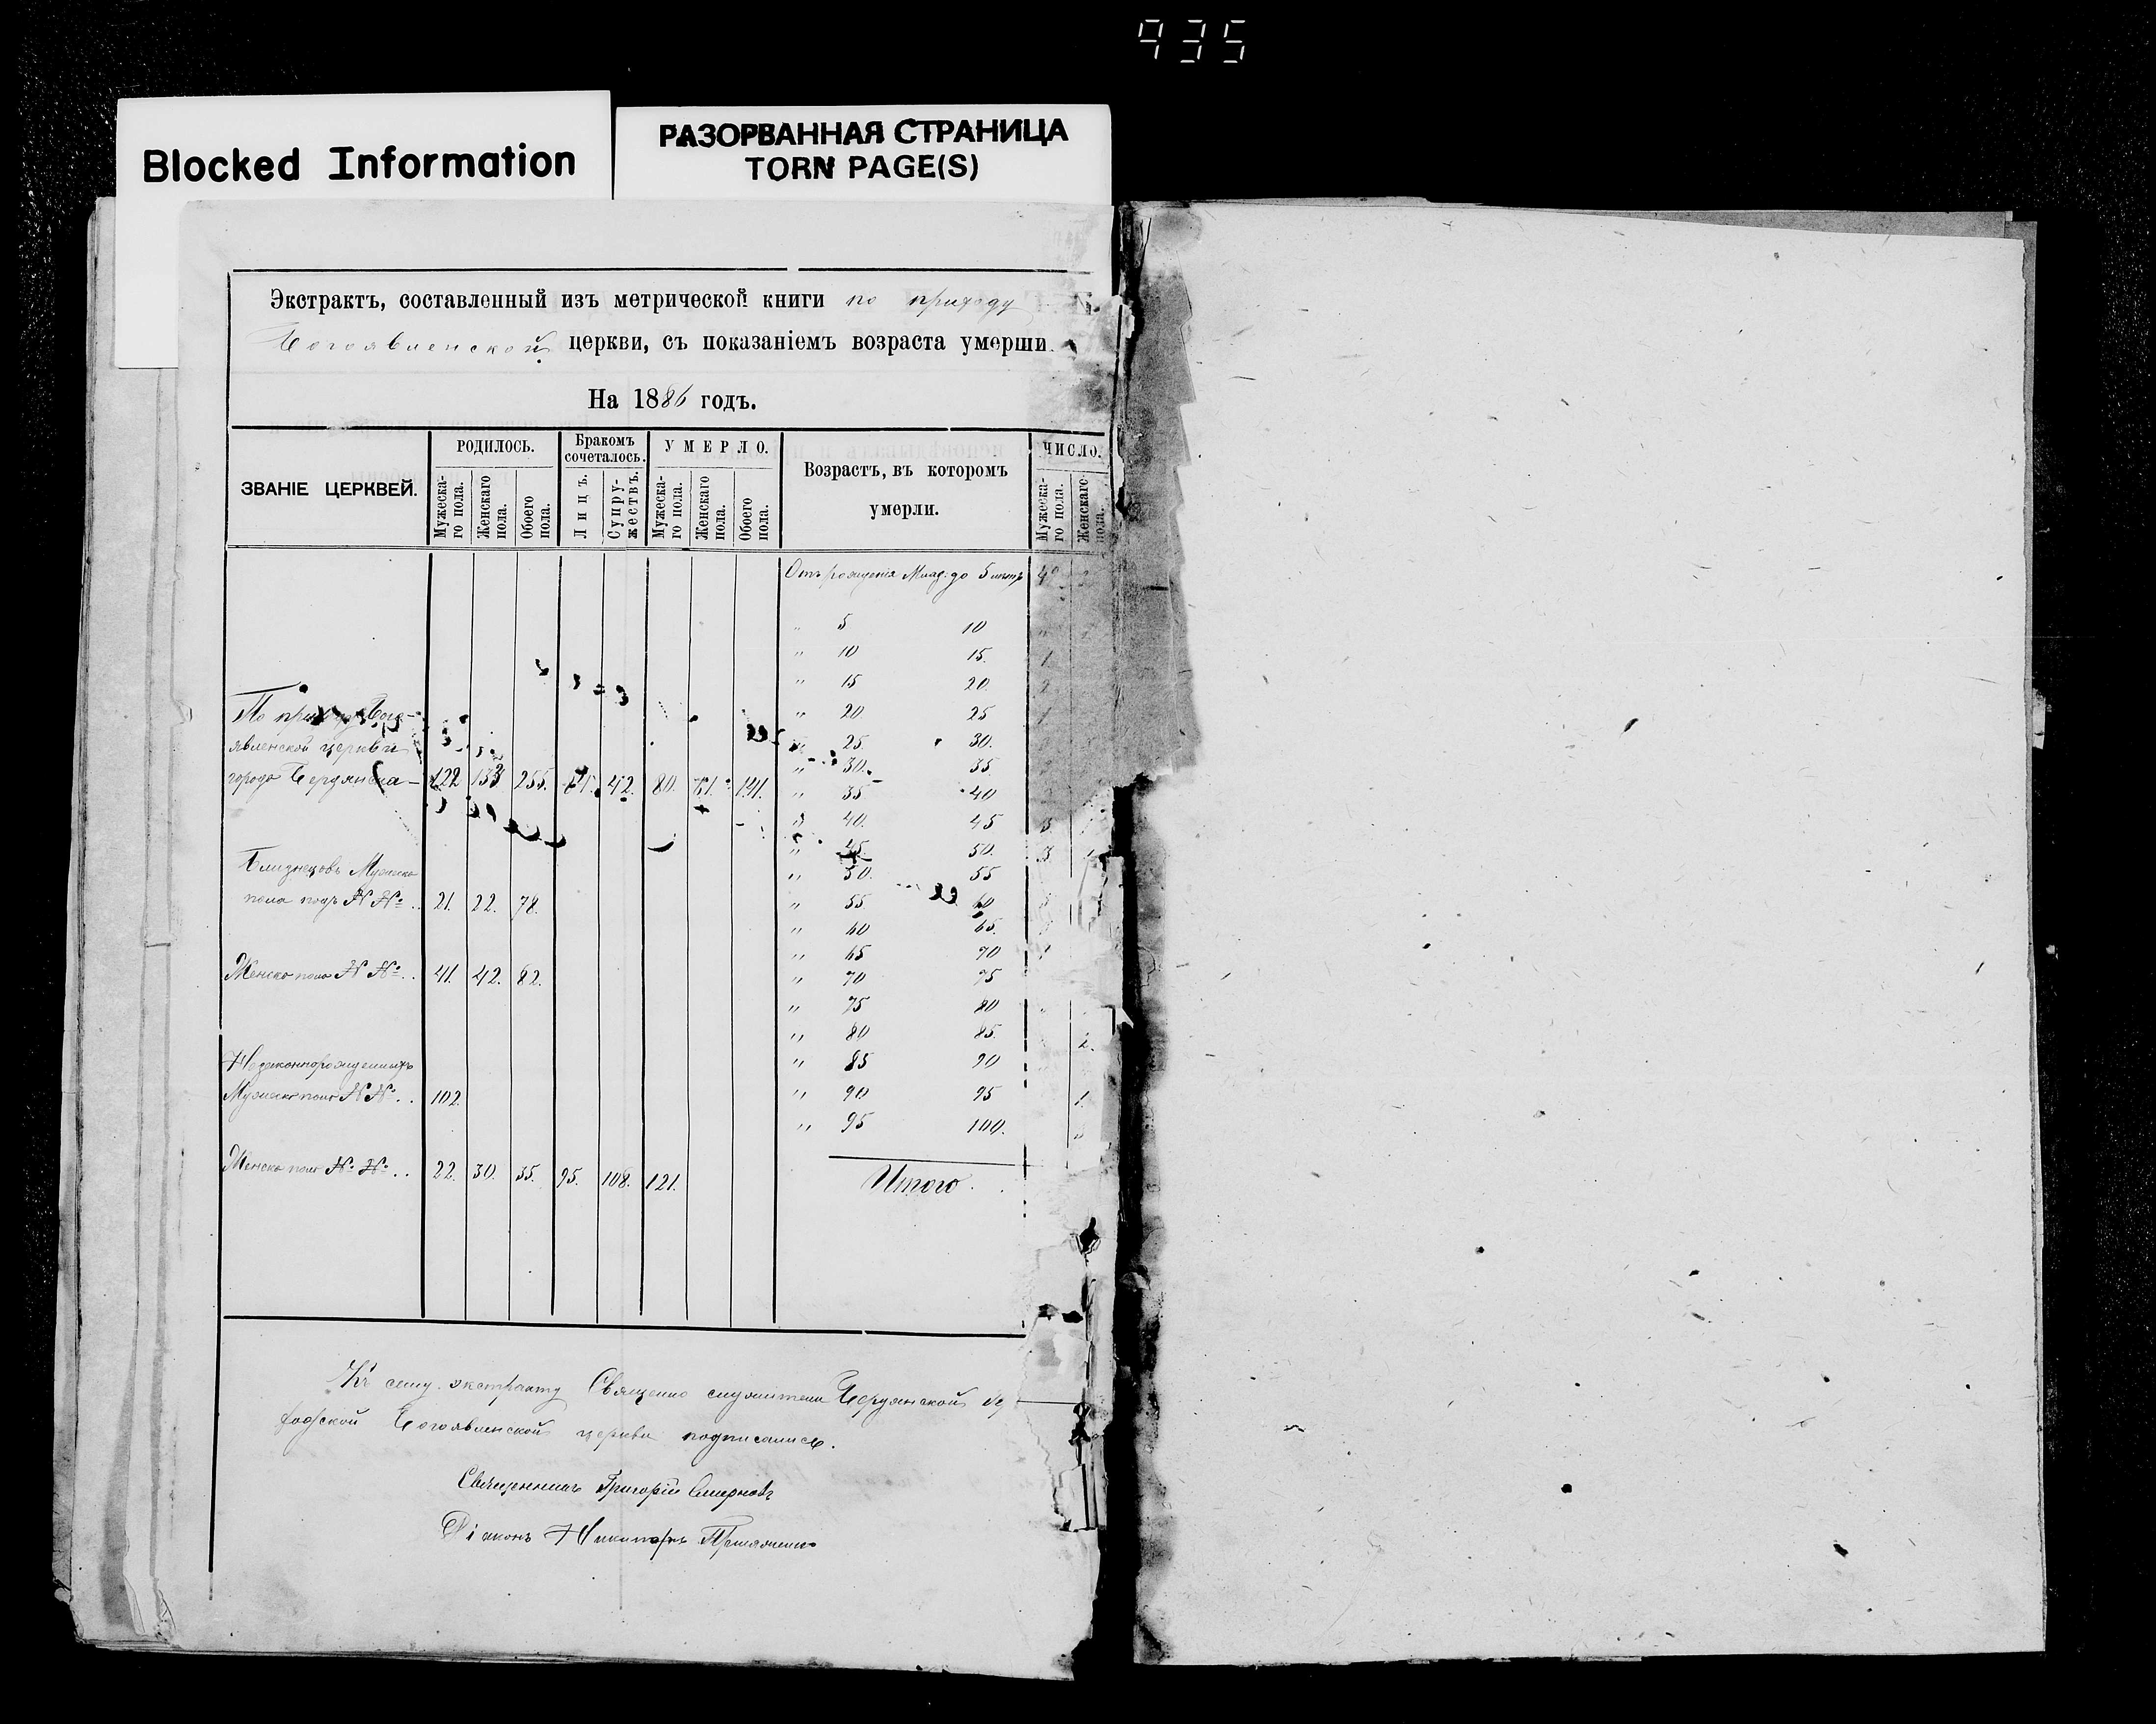 935
Blocked Information
РАЗОРВАННАЯ СТРАНИЦА
TORN PAGE(S)
Экстрактъ, составленный изъ метрической книги по приходу
Богоявленской церкви, съ показаніемъ возраста умерши
На 1886 годъ.
ЗВАНІЕ ЦЕРКВЕЙ.
РОДИЛОСЬ.
Мужеска-
го пола.
Женскаго
пола.
Обоего
пола.
Бракомъ
сочеталось.
Лицъ.
Супру-
жествъ.
УМЕРЛО.
Мужеска-
го пола.
Женскаго
пола.
Обоего
пола.
Возрастъ, въ которомъ
умерли.
ЧИСЛО.
Мужеска-
го пола.
Женскаго
пола.
Отъ рожденія Млад: до 5 лѣтъ
" 5 10
" 10 15. 1.
" 15 20.
" 20 25
" 25. 30.
" 30. 35
" 35 40
" 40. 45
" 45. 50.
" 50. 55
" 55. 60
" 60 65.
" 65 70
" 70 75
" 75 80
" 80 85. 2.
" 85 90
" 90 95
" 95 100.
Итого
По приходу Бого-
явленской церкви
города Бердянска 122 133 255. 42. 80. 61. 141.
Близнецовъ Мужеска
пола подъ № № 21. 22. 78.
Женска пола № № 41. 42. 82.
Незаконнорожденныхъ
Мужеска пола № № 102.
Женска пола № № 22. 30. 35. 95. 108. 121.
Къ сему экстракту Священно служители Бердянской
Богоявленской церкви подписались.
Священникъ Григорій Смирновъ
Діаконъ